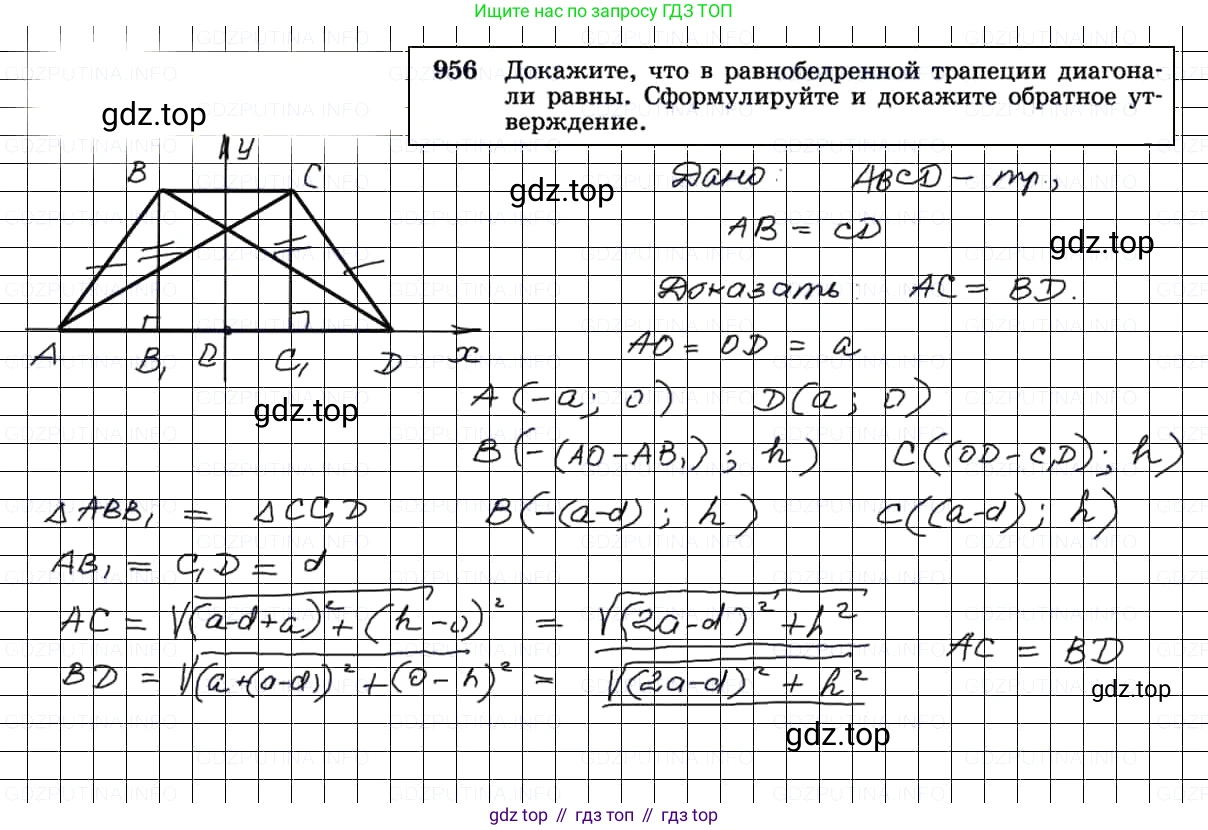 Ищите нас по запросу ГДЗ ТОП
956 Докажите, что в равнобедренной трапеции диагона-
ли равны. Сформулируйте и докажите обратное ут-
верждение.
gdz.top
y
B C
gdz.top
Дано: ABCD – тр.,
AB = CD
gdz.top
Доказать: AC = BD.
A B₁ O C₁ D x
AO = OD = a
gdz.top
A (-a; 0) D(a; 0)
B(-(AO-AB₁); h) C((OD-C₁D); h)
Δ ABB₁ = Δ CC₁D B(-(a-d); h) C((a-d); h)
AB₁ = C₁D = d
AC = √(a-d+a)² + (h-0)² = √(2a-d)² + h²
AC = BD
BD = √(a+(a-d))² + (0-h)² = √(2a-d)² + h²
gdz.top
gdz.top
gdz топ // гдз топ // gdz top